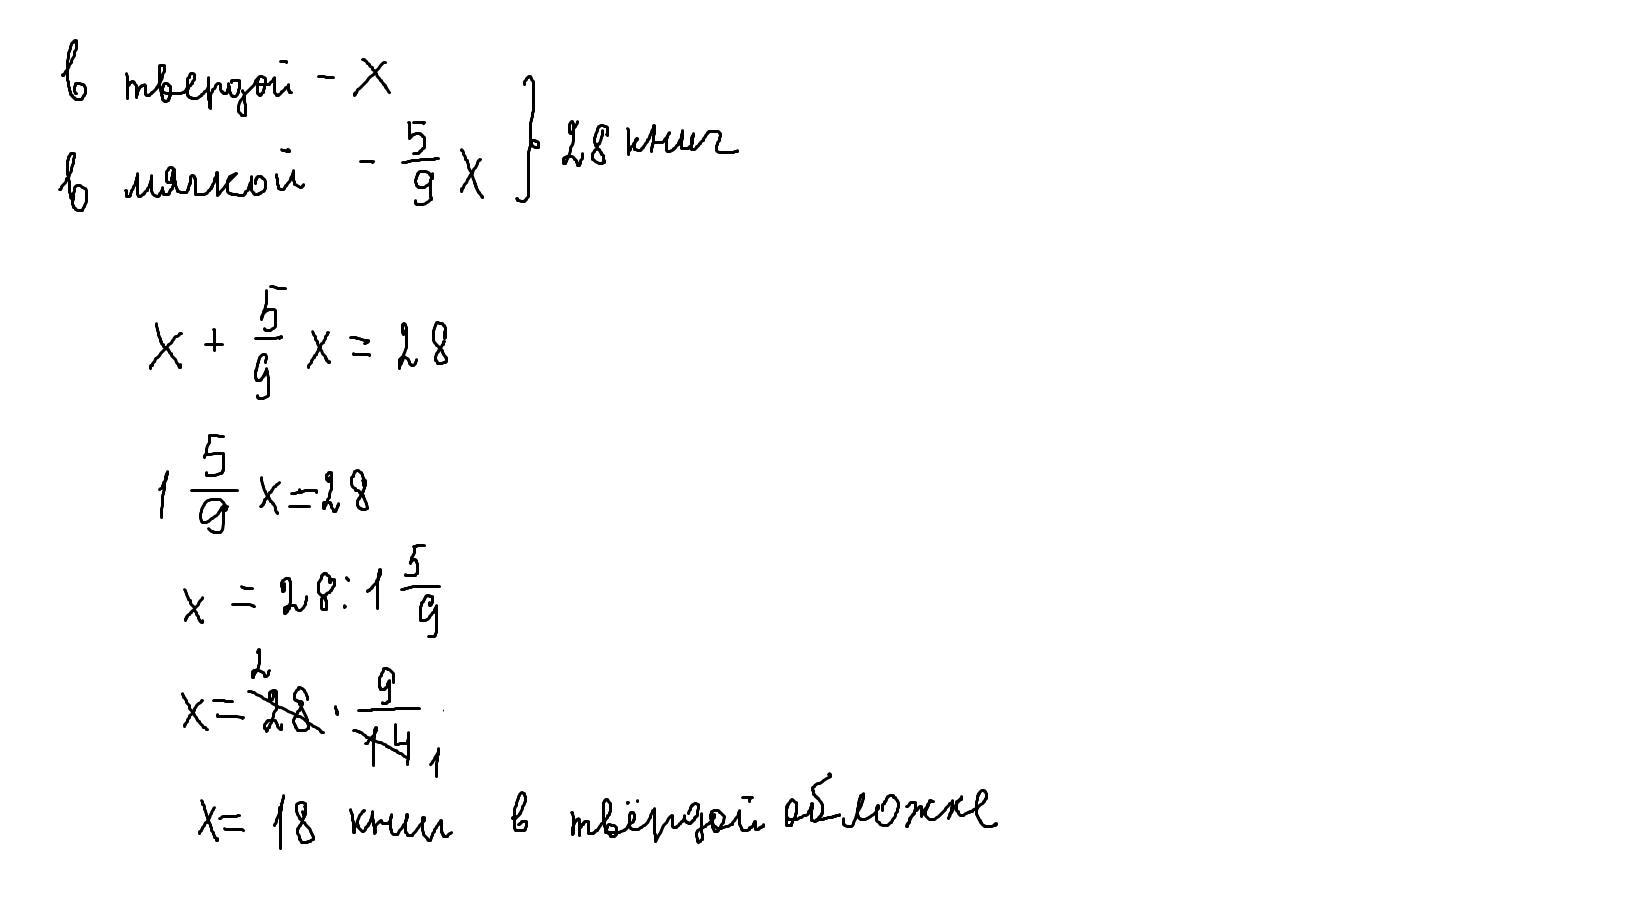 в твердой - x
в мягкой - 5/9 x } 28 книг
x + 5/9 x = 28
1 5/9 x = 28
x = 28 : 1 5/9
x = 28 2 · 9/14 1
x = 18 книг в твёрдой обложке